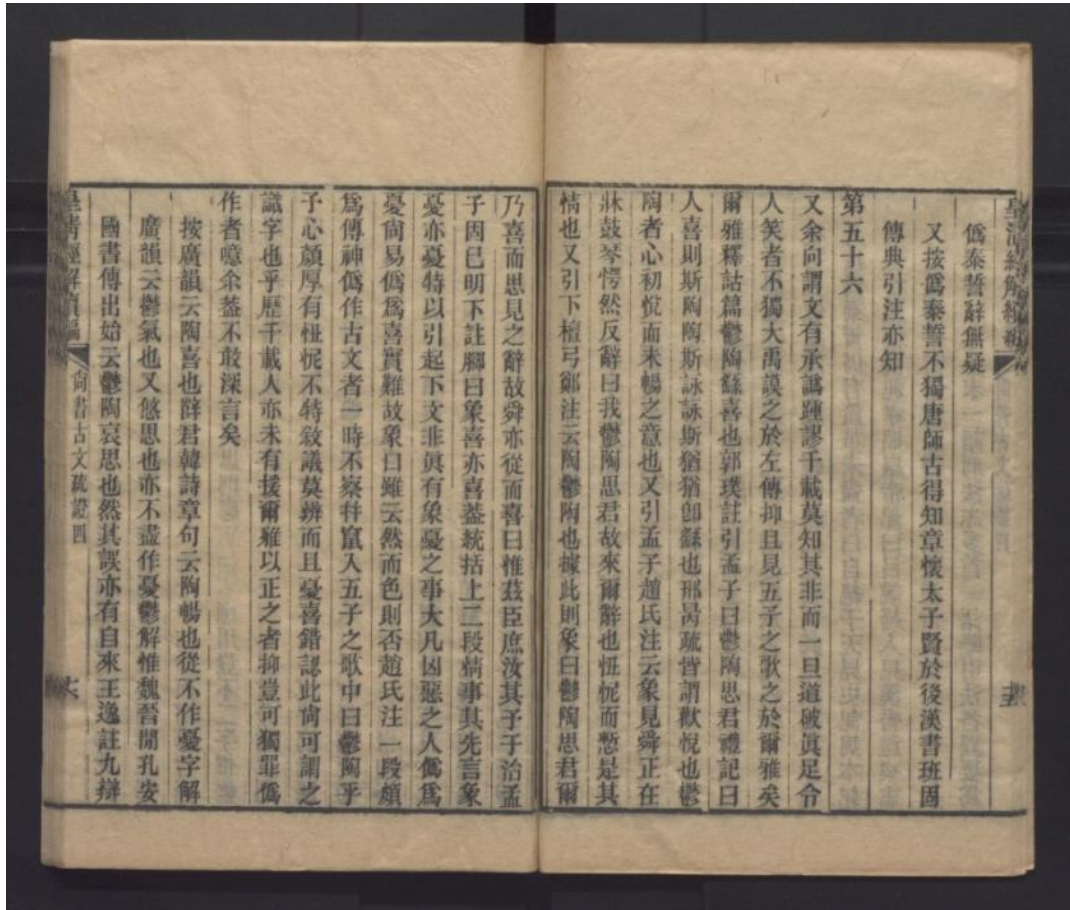 皇清經解續編
僞泰誓辭無疑
又按僞泰誓不獨唐師古得知章懷太子賢於後漢書班固
傳典引注亦知
第五十六
又余向謂文有承譌踵謬千載莫知其非而一旦道破眞足令
人笑者不獨大禹謨之於左傳抑且見五子之歌之於爾雅矣
爾雅釋詁篇鬱陶繇喜也郭璞註引孟子曰鬱陶思君禮記曰
人喜則斯陶陶斯詠詠斯猶猶卽繇也邢昺疏皆謂歡悅也鬱
陶者心初悅而未暢之意也又引孟子趙氏注云象見舜正在
牀鼓琴愕然反辭曰我鬱陶思君故來爾辭也忸怩而慙是其
情也又引下檀弓鄭注云陶鬱陶也據此則象曰鬱陶思君爾
乃喜而思見之辭故舜亦從而喜曰惟茲臣庶汝其于予治孟
子因已明下註腳曰象喜亦喜葢統括上二段情事其先言象
憂亦憂特以引起下文非眞有象憂之事大凡凶惡之人僞爲
憂尙易僞爲喜實難故象曰雖云然而色則否趙氏注一段頗
爲傳神僞作古文者一時不察科竄入五子之歌中曰鬱陶乎
予心顏厚有忸怩不特敘議莫辨而且憂喜錯認此尙可謂之
識字也乎歷千載人亦未有援爾雅以正之者抑豈可獨罪僞
作者噫余葢不敢深言矣
按廣韻云陶喜也薛君韓詩章句云陶暢也從不作憂字解
廣韻云鬱氣也又悠思也亦不盡作憂鬱解惟魏晉閒孔安
國書傳出始云鬱陶哀思也然其誤亦有自來王逸註九辯
皇清經解續編
尙書古文疏證四